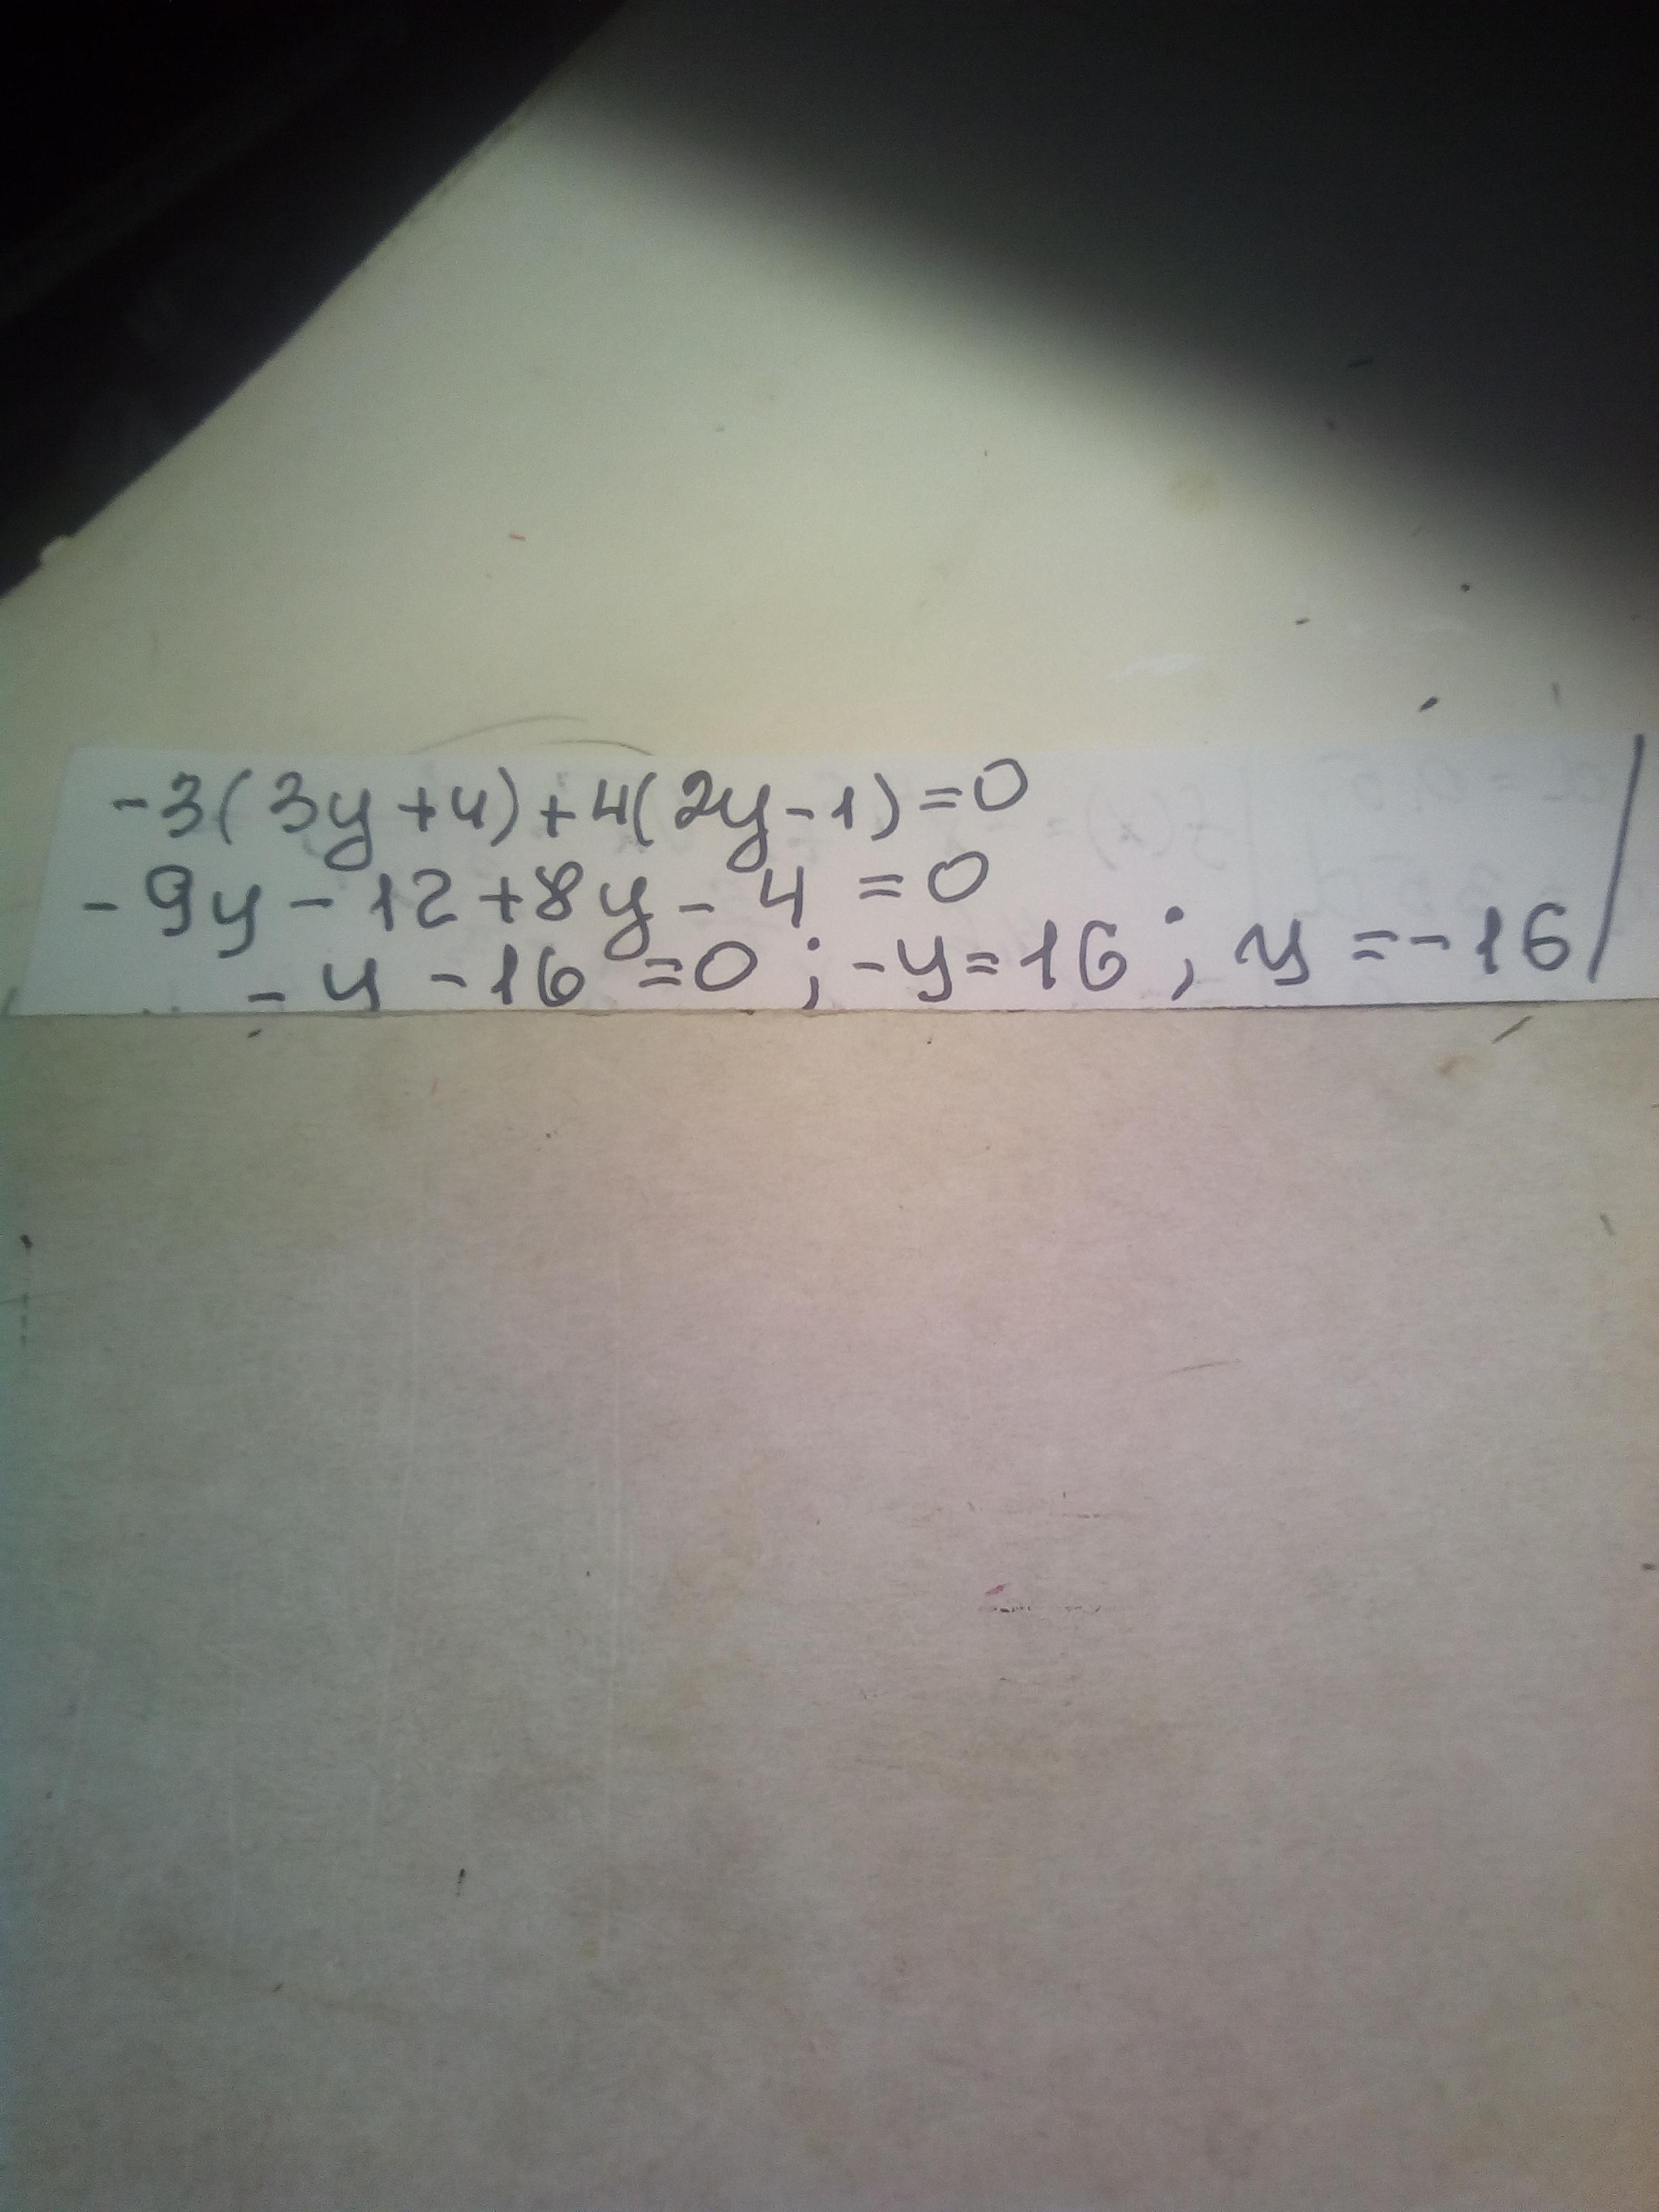 -3(3y+4)+4(2y-1)=0
-9y-12+8y-4=0
-y-16=0; -y=16; y=-16